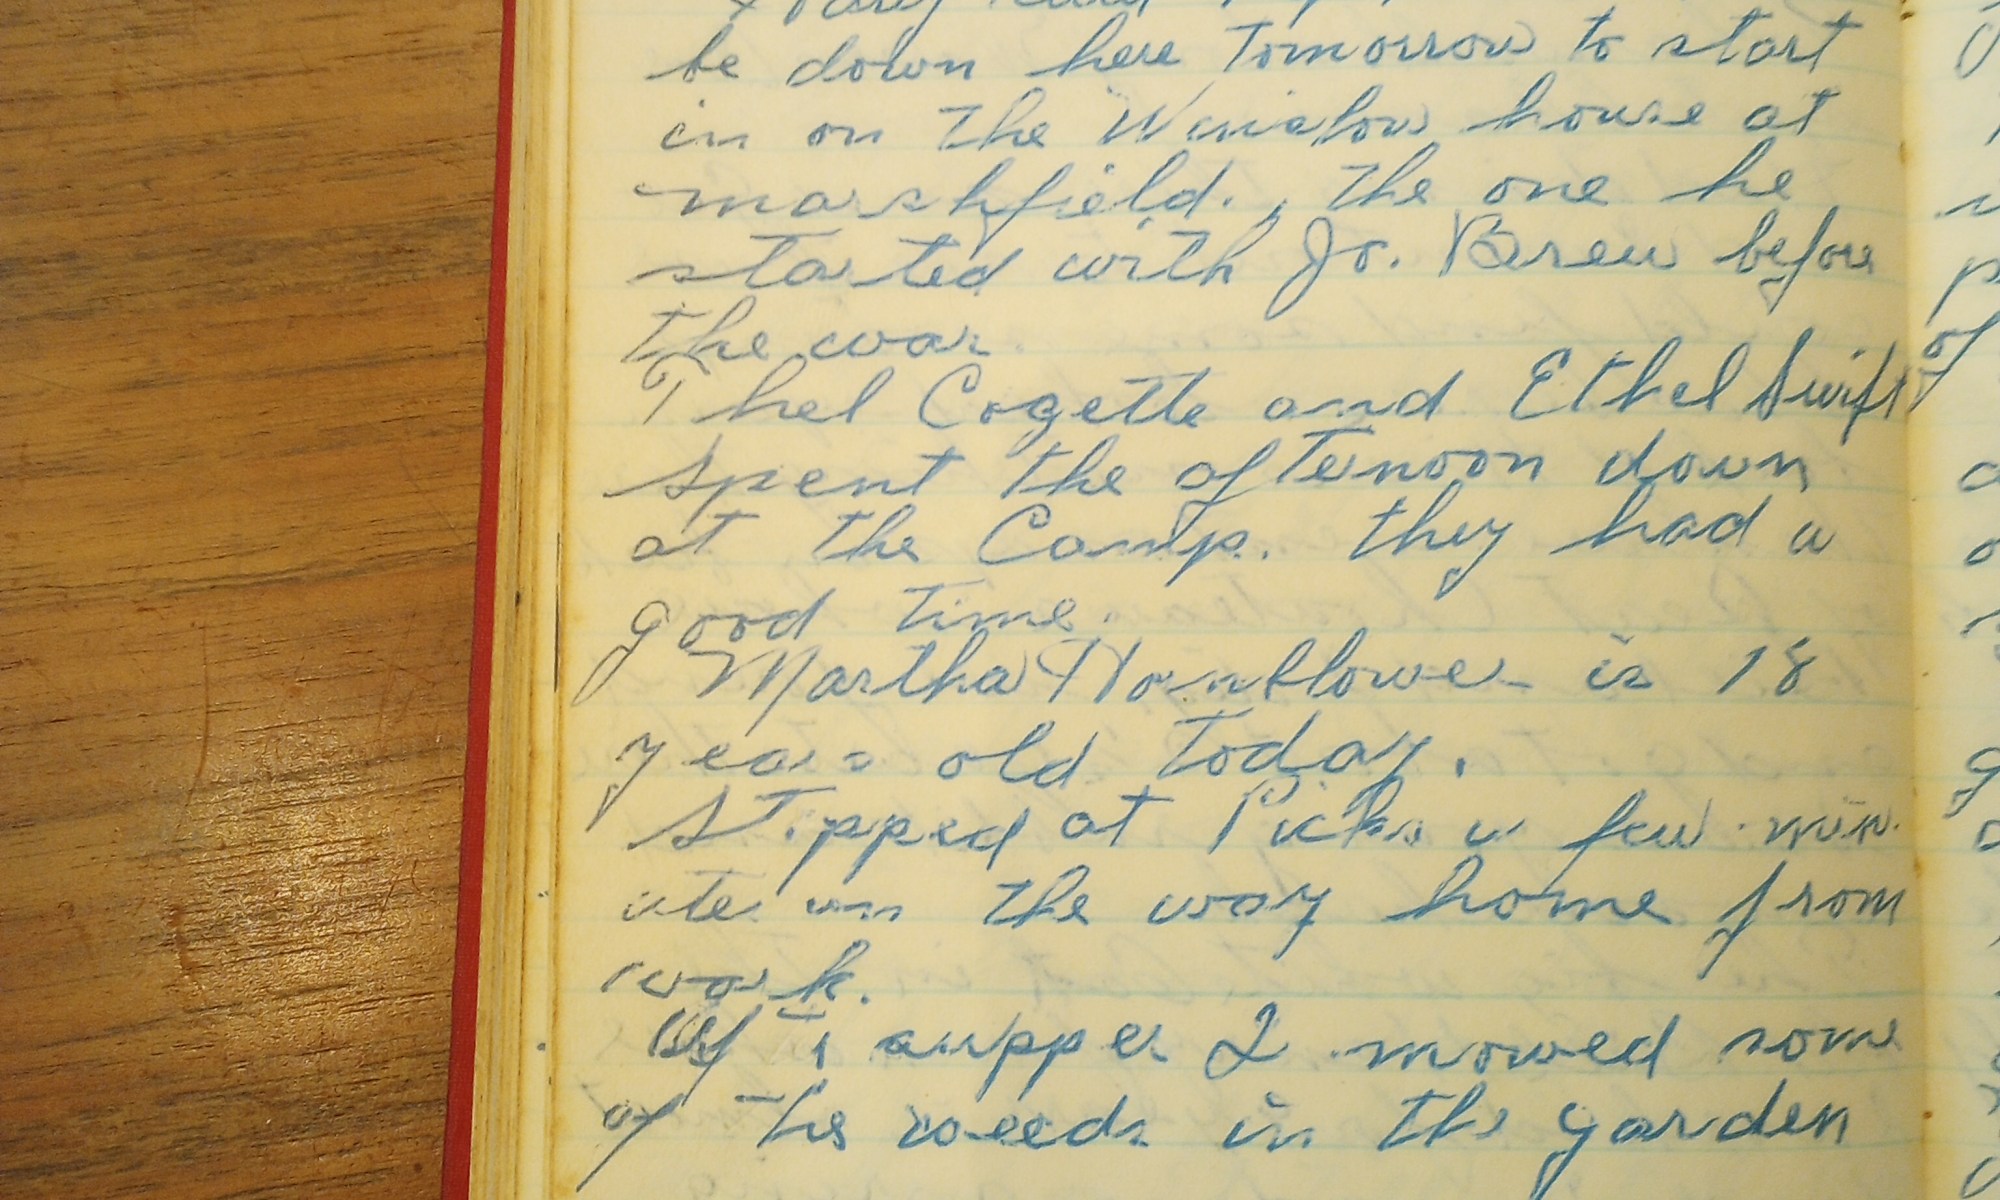 be down here tomorrow to start
in on the Winslow house at
marshfield., the one he
started with Jo. Brew before
the war.
Thel Cogette and Ethel Swift
spent the afternoon down
at the Camp. they had a
good time.
Martha Hornblower is 18
years old today.
Stopped at Pick's a few min
utes on the way home from
work.
supper I mowed some
of the weeds in the garden